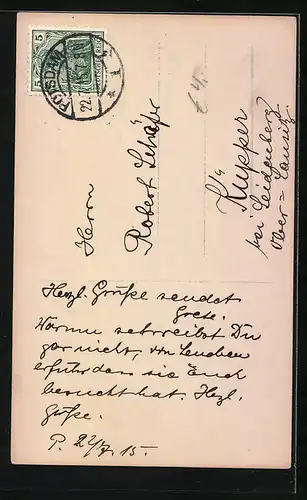 5
POTSDAM
22.
1
€ 4,-
Herrn
Robert Schäfer
Küpper
bei Seidenberg
Ober-Lausitz
Herzl. Grüße sendet
Grete.
Warum schreibst Du
gar nicht, von Lenchen
erfuhr das sie Euch
besucht hat. Herzl.
Grüße.
P. 22/7. 15.